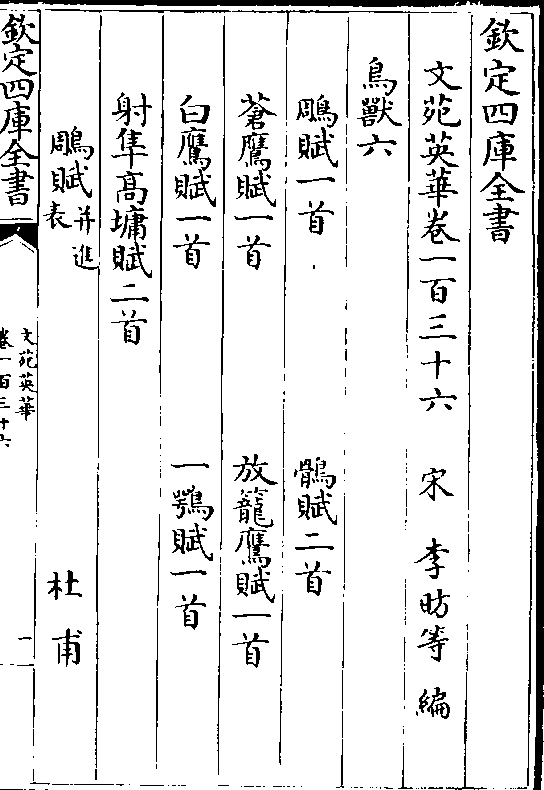 欽定四庫全書
文苑英華卷一百三十六 宋 李昉等 編
鳥獸六
鵰賦一首 鶻賦二首
蒼鷹賦一首 放籠鷹賦一首
白鷹賦一首 一鶚賦一首
射隼高墉賦二首
鵰賦并進表 杜甫
欽定四庫全書
文苑英華
卷一百三十六
一